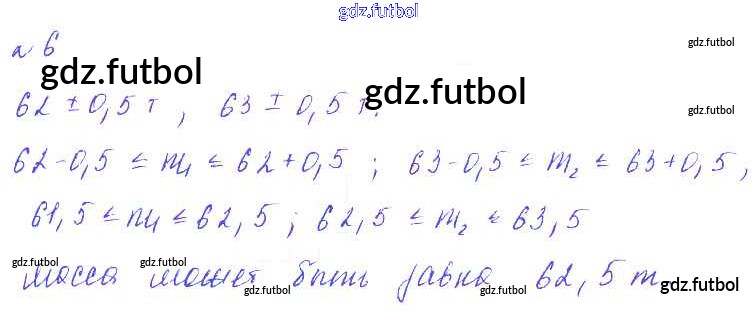 gdz.futbol
№ 6
gdz.futbol
gdz.futbol
62 ± 0,5 т, 63 ± 0,5 т.
gdz.futbol
gdz.futbol
62-0,5 ≤ m₁ ≤ 62+0,5 ; 63-0,5 ≤ m₂ ≤ 63+0,5,
61,5 ≤ m₁ ≤ 62,5 ; 62,5 ≤ m₂ ≤ 63,5
gdz.futbol gdz.futbol gdz.futbol
Масса может быть равна 62,5 т
gdz.futbol gdz.futbol gdz.futbol